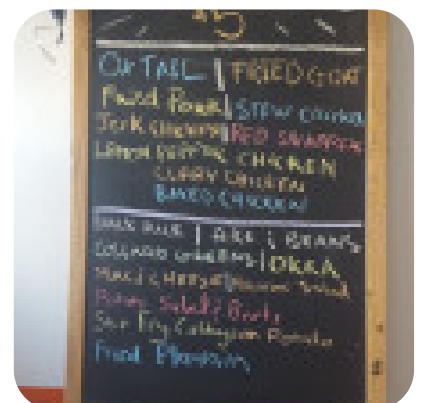 OxTAIL | FRIED GOAT
Fried Pork | STEW Chicken
Jerk CHICKEN | RED SNAPPER
LEMON PEPPER CHICKEN
CURRY CHICKEN
BAKED CHICKEN
RICE | & BEANS
COLLARD GREENS | OKRA
MAC & CHEESE | Salad
Potato Salad
Stir Fry Cabbage
Fried Plantain